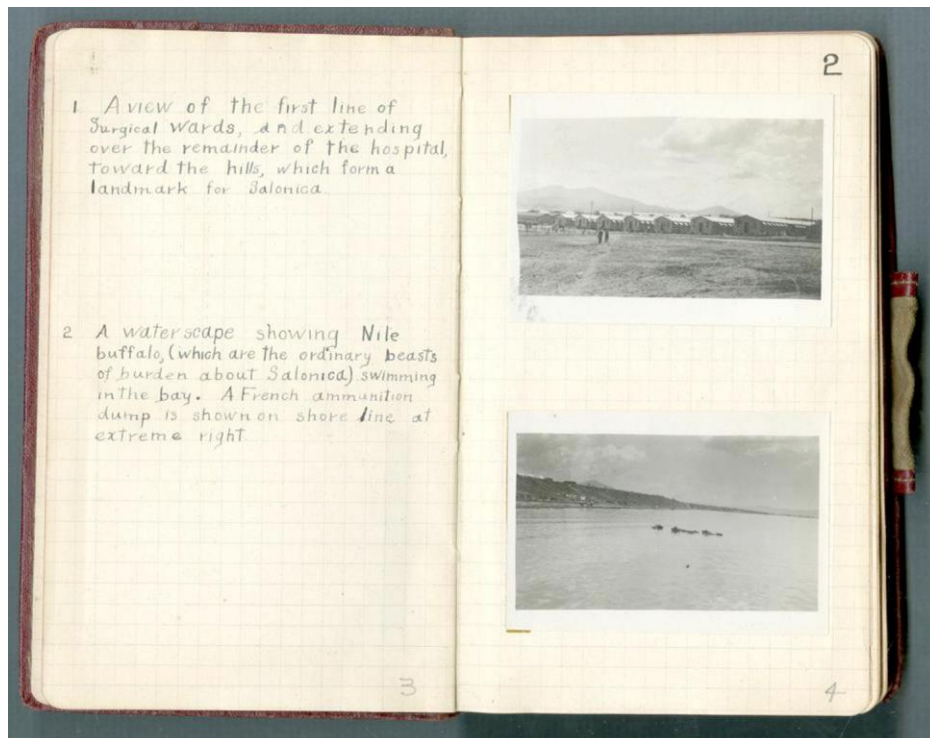 1. A view of the first line of
Surgical Wards, and extending
over the remainder of the hospital,
toward the hills, which form a
landmark for Salonica
2 A waterscape showing Nile
buffalo, (which are the ordinary beasts
of burden about Salonica) swimming
in the bay. A French ammunition
dump is shown on shore line at
extreme right
3
2
4